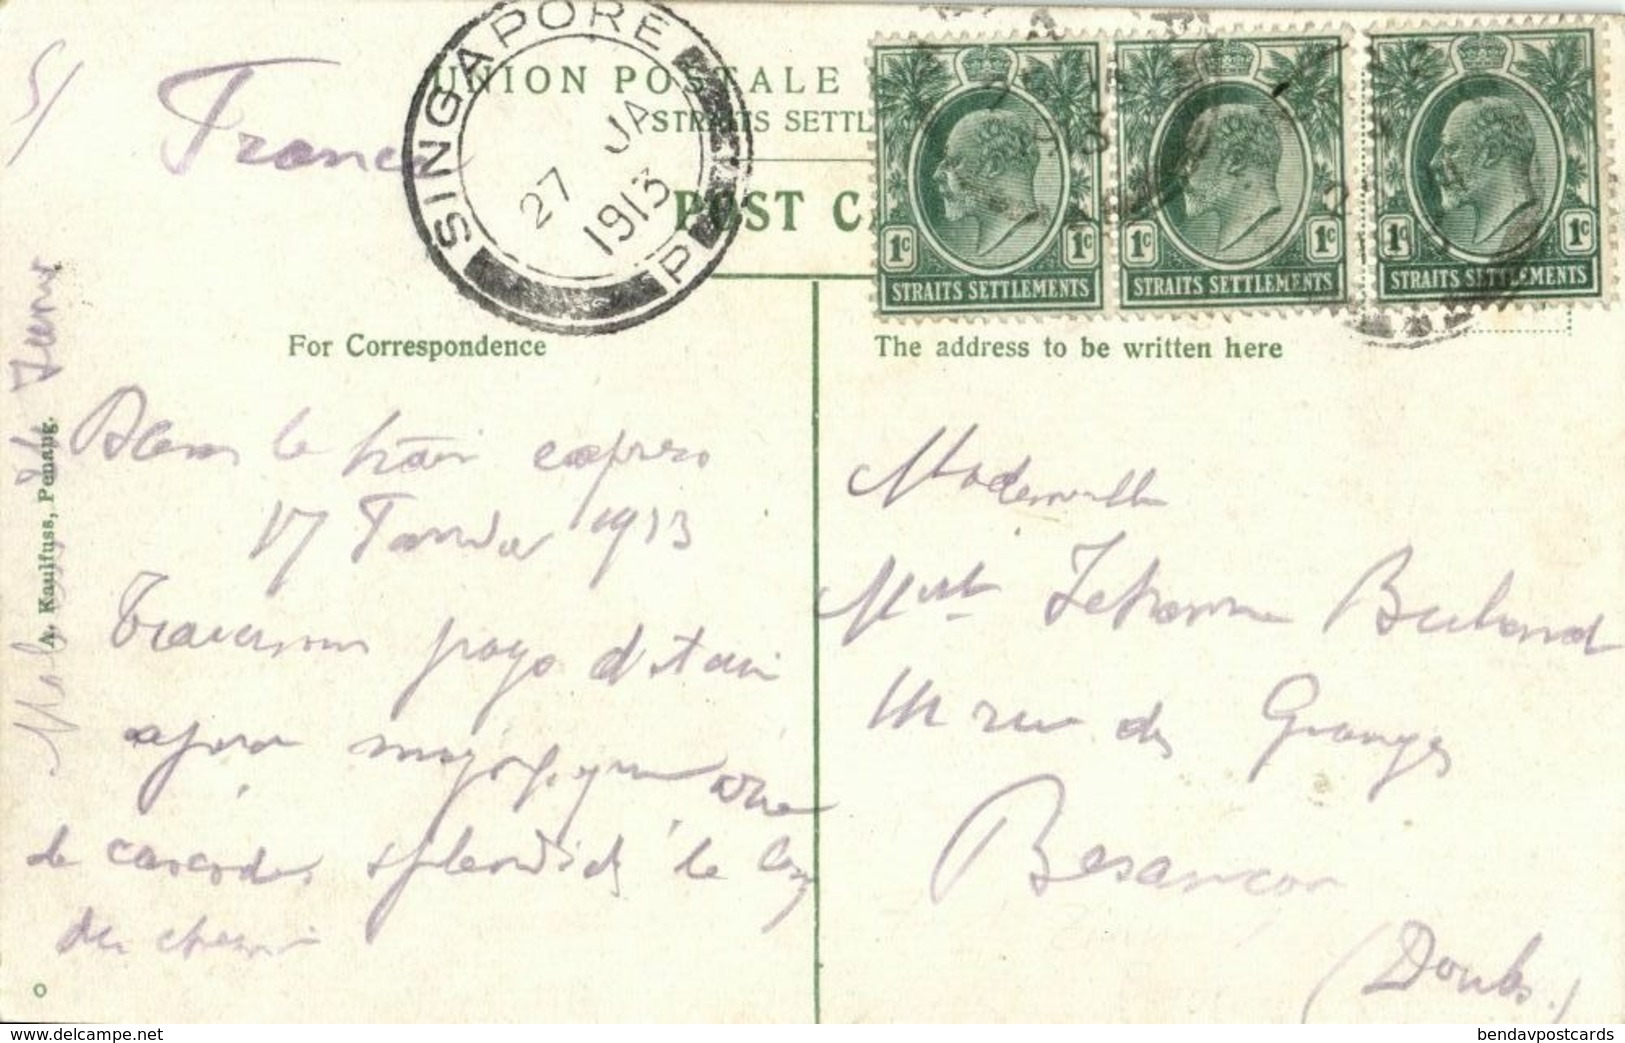 5/
France
SINGAPORE
P
27 JA
1913
UNION POSTALE
STRAITS SETTL
POST C
1c 1c
STRAITS SETTLEMENTS
1c 1c
STRAITS SETTLEMENTS
1c 1c
STRAITS SETTLEMENTS
For Correspondence
The address to be written here
A. Kaulfuss, Penang.
Dans le train express
17 Janvier 1913
Traversons pays d
magnifique
de cascades splendides le long
du chemin
Mademoiselle
Jehanne
rue des Granges
Besançon
(Doubs.)
O
delcampe.net
bendavpostcards